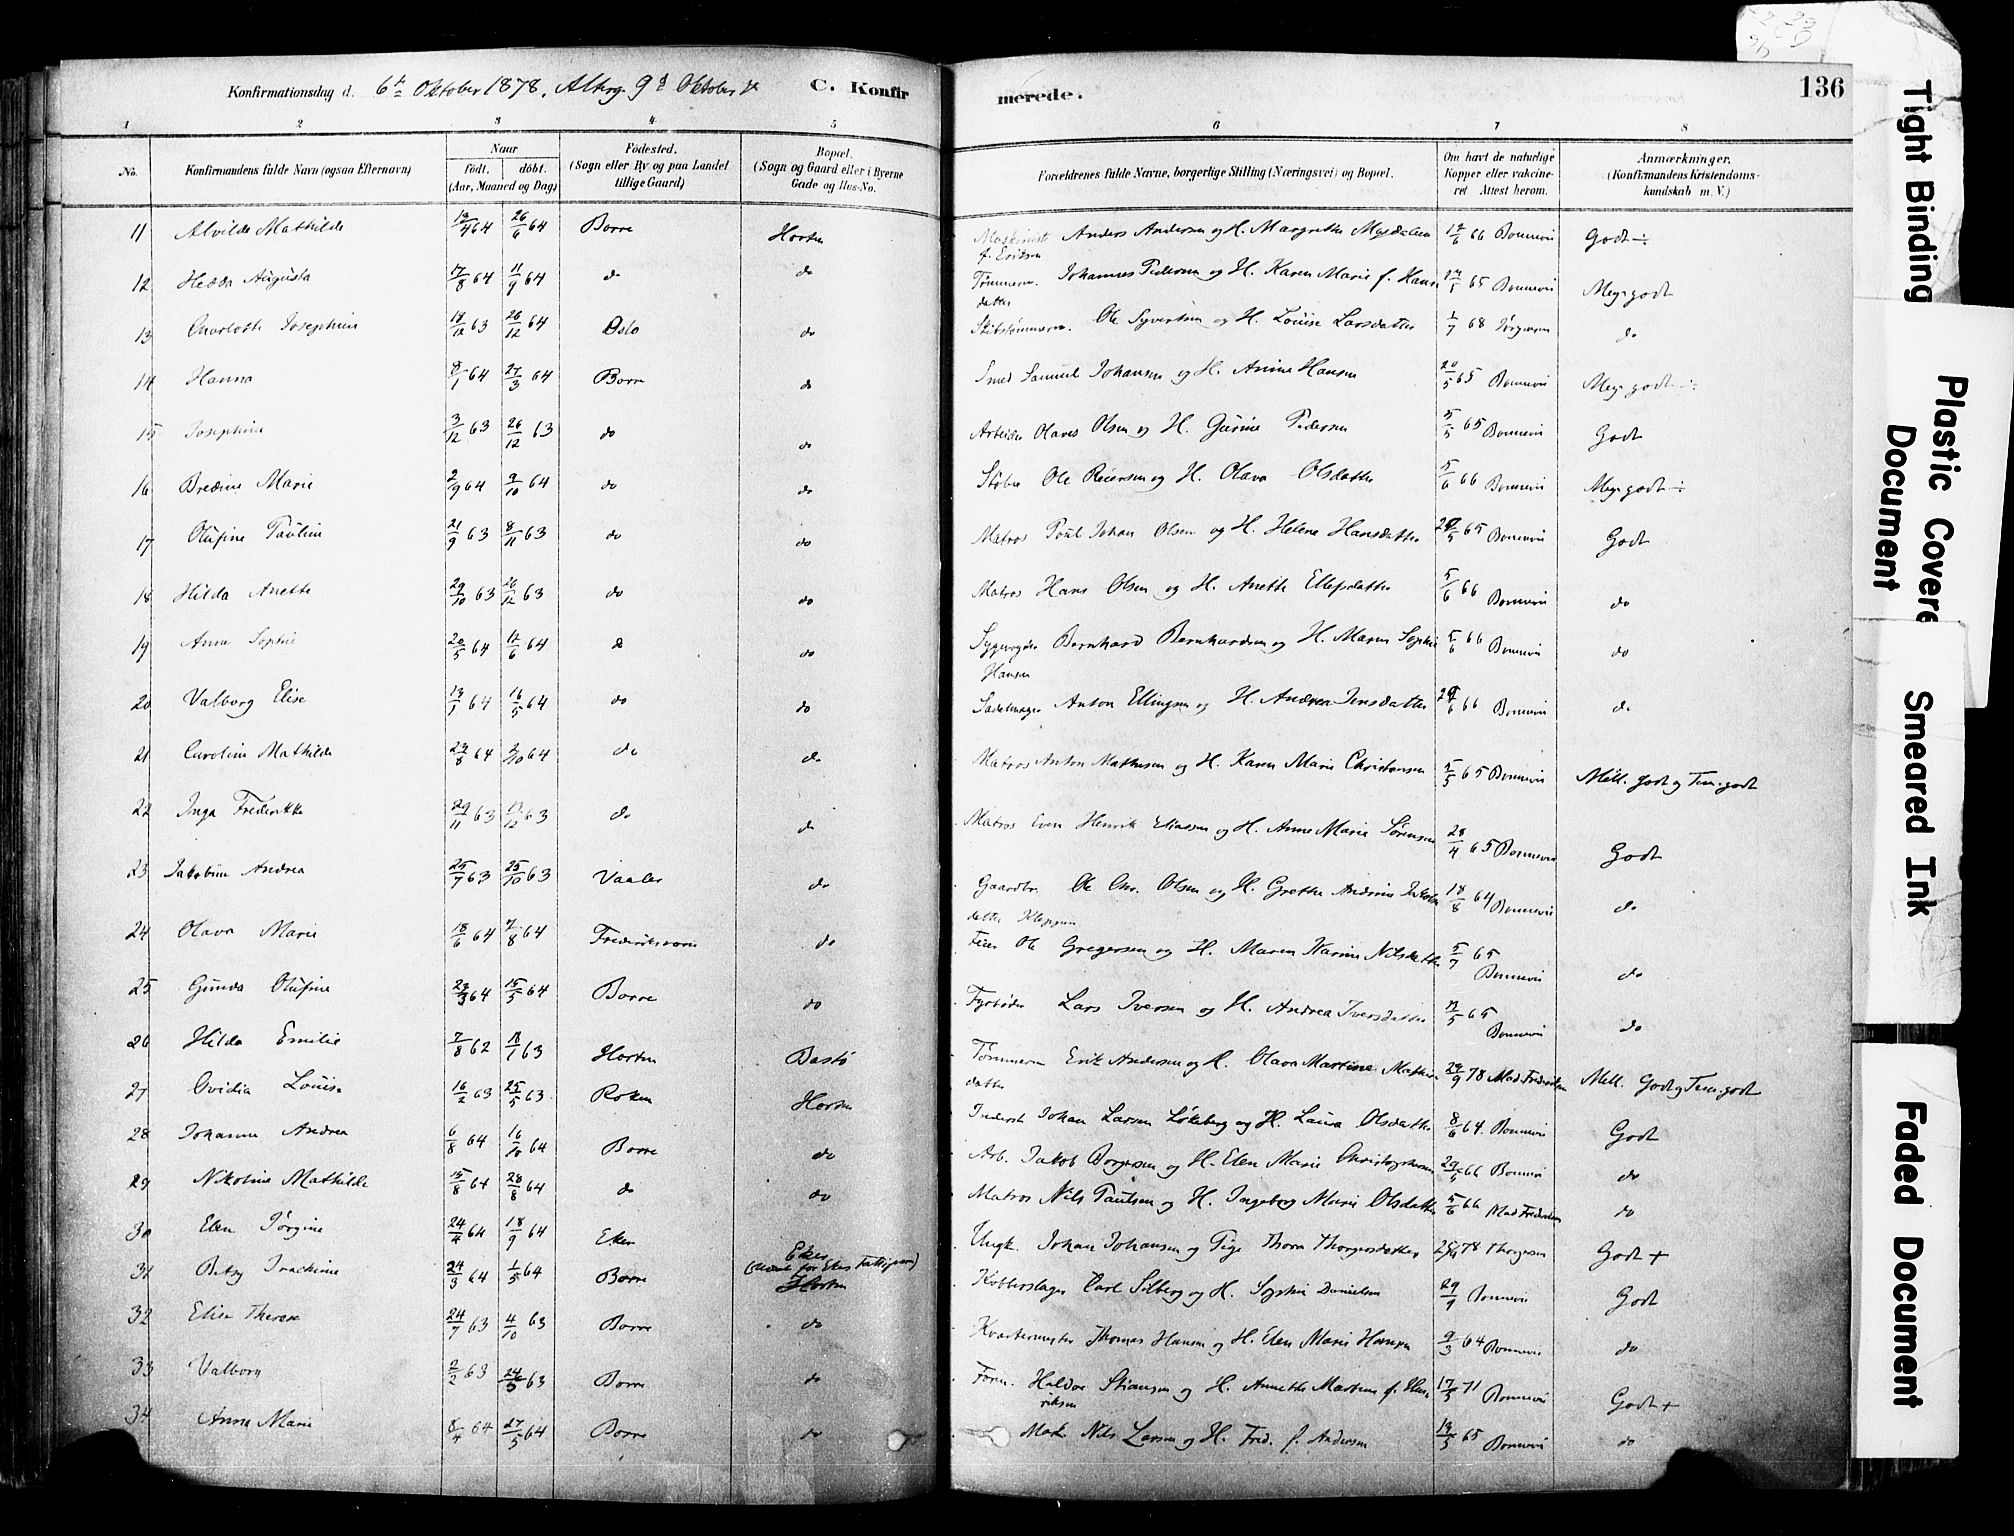 Konfirmationsdag d. 6te Oktober 1878. Alterg. 9d Oktober C. Konfirmerede. 136
1 2 3 4 5 6 7 8
No. Konfirmandens fulde Navn (ogsaa Efternavn) Naar født. døbt. (Aar, Maaned og Dag) Fødested. (Sogn eller By og paa Landet tillige Gaard) Bopæl. (Sogn og Gaard eller i Byerne Gade og Hus-No. Forældrenes fulde Navne, borgerlige Stilling (Næringsvei) og Bopæl. Om havt de naturlige Kopper eller vakcineret Attest herom. Anmærkninger. (Konfirmandens Kristendomskundskab m. V.)
11 Alvilde Mathilde 13/4 64 26/6 64 Borre Horten Maskinist Anders Andersen og H. Margrethe Magdalena f. Eriksen 12/6 66 Bonnevie Godt ÷
12 Hedda Augusta 17/8 64 11/9 64 do do Tømmerm. Johannes Pedersen og H. Karen Marie f. Hansdatter 65 Bonnevie Meg. godt
13 Charlotte Josephine 18/12 63 26/12 64 Oslo do Skibstømmerm. Ole Syvertsen og H. Louise Larsdatter 1/7 68 Jørgensen do
14 Hanna 8/1 64 27/3 64 Borre do Smed Samuel Johansen og H. Anine Hansen 20/5 65 Bonnevie Meg. godt ÷
15 Josephine 3/12 63 26/12 63 do do Arbeider Olaves Olsen og H. Gurine Pedersen 5/5 65 Bonnevie Godt
16 Bredine Marie 2/9 64 9/10 64 do do Støber Ole Reiersen og H. Olava Olsdatter 5/6 66 Bonnevie Meg. godt ÷
17 Olufine Pauline 21/9 63 8/11 63 do do Matros Poul Johan Olsen og H. Helene Hansdatter 65 Bonnevie Godt
18 Hilda Anette 29/10 63 26/12 63 do do Matros Hans Olsen og H. Anette Ellefsdatter 5/6 66 Bonnevie do
19 Anna Sophie 20/5 64 12/6 64 do do Bernhard Bernhardsen og H. Maren Sophie Hansen 5/6 66 Bonnevie do
20 Valborg Elise 13/1 64 16/5 64 do do Sadelmager Anton Ellingsen og H. Andrea Jensdatter 66 Bonnevie do
21 Caroline Mathilde 23/8 64 2/10 64 do do Matros Anton Mathisen og H. Karen Marie Christensen 5/5 65 Bonnevie Mell. godt og Tem. godt
22 Inga Fredrikke 29/11 63 13/12 63 do do Matros Even Henrik Eliassen og H. Anne Marie Sørensen 28/4 65 Bonnevie Godt
23 Jakobine Andrea 25/7 63 25/10 63 Vaaler do Gaardbr. Ole Chr. Olsen og H. Grethe Andrine Jakobsdatter Kleppen 18/8 64 Bonnevie do
24 Olava Marie 18/6 64 7/8 64 Frederiksværn do Ole Gregersen og H. Maren Karine Nilsdatter 5/7 65 Bonnevie do
25 Gunda Olufine 23/3 64 15/5 64 Borre do Fyrbøder Lars Iversen og H. Andrea Iversdatter 65 Bonnevie do
26 Hilda Emilie 7/8 62 18/1 63 Horten Bastø Tømmerm Erik Andersen og H. Olava Martine Mathisdatter 78 Mad Fredriksen Mell. Godt og Tem. godt
27 Ovidia Louisa 16/2 63 25/5 63 Røken Horten Inderst Johan Larsen Løkeberg og H. Laura Olsdatter 8/6 64. Bonnevie Godt
28 Johanne Andrea 6/8 64 16/10 64 Borre do Arb. Jakob Borgersen og H. Elen Marie Christophersen 29/5 66 Bonnevie do
29 Nikoline Mathilde 15/8 64 28/8 64 do do Matros Nils Paulsen og H. Ingeborg Marie Olsdatter 5/6 66 Mad Fredriksen do
30 Elen Jørgine 24/4 64 18/9 64 Eker Eker Ungk. Johan Johansen og Pige Thora Thorgersdatter 78 Thorgersen Godt +
31 Betsy Joachime 24/3 64 1/5 64 Borre Horten Kobberslager Carl Solberg og H. Sophie Danielsen 29/9 Bonnevie Godt
32 Elise Therese 24/7 63 4/10 63 Borre do Kvartermester Thomas Hansen og H. Elen Marie Hansen 9/3 64 Bonnevie do
33 Valborg 2/2 63 24/5 63 Borre do Form. Haldor Stiansen og H. Annette Martine f. Henriksen 17/5 71 Bonnevie Godt +
34 Anna Marie 8/4 64 27/5 64 Borre do Nils Larsen og H. Fred. f. Andersen 65 Bonnevie do
Tight Binding
Plastic Covere
Document
Smeared Ink
Faded Document